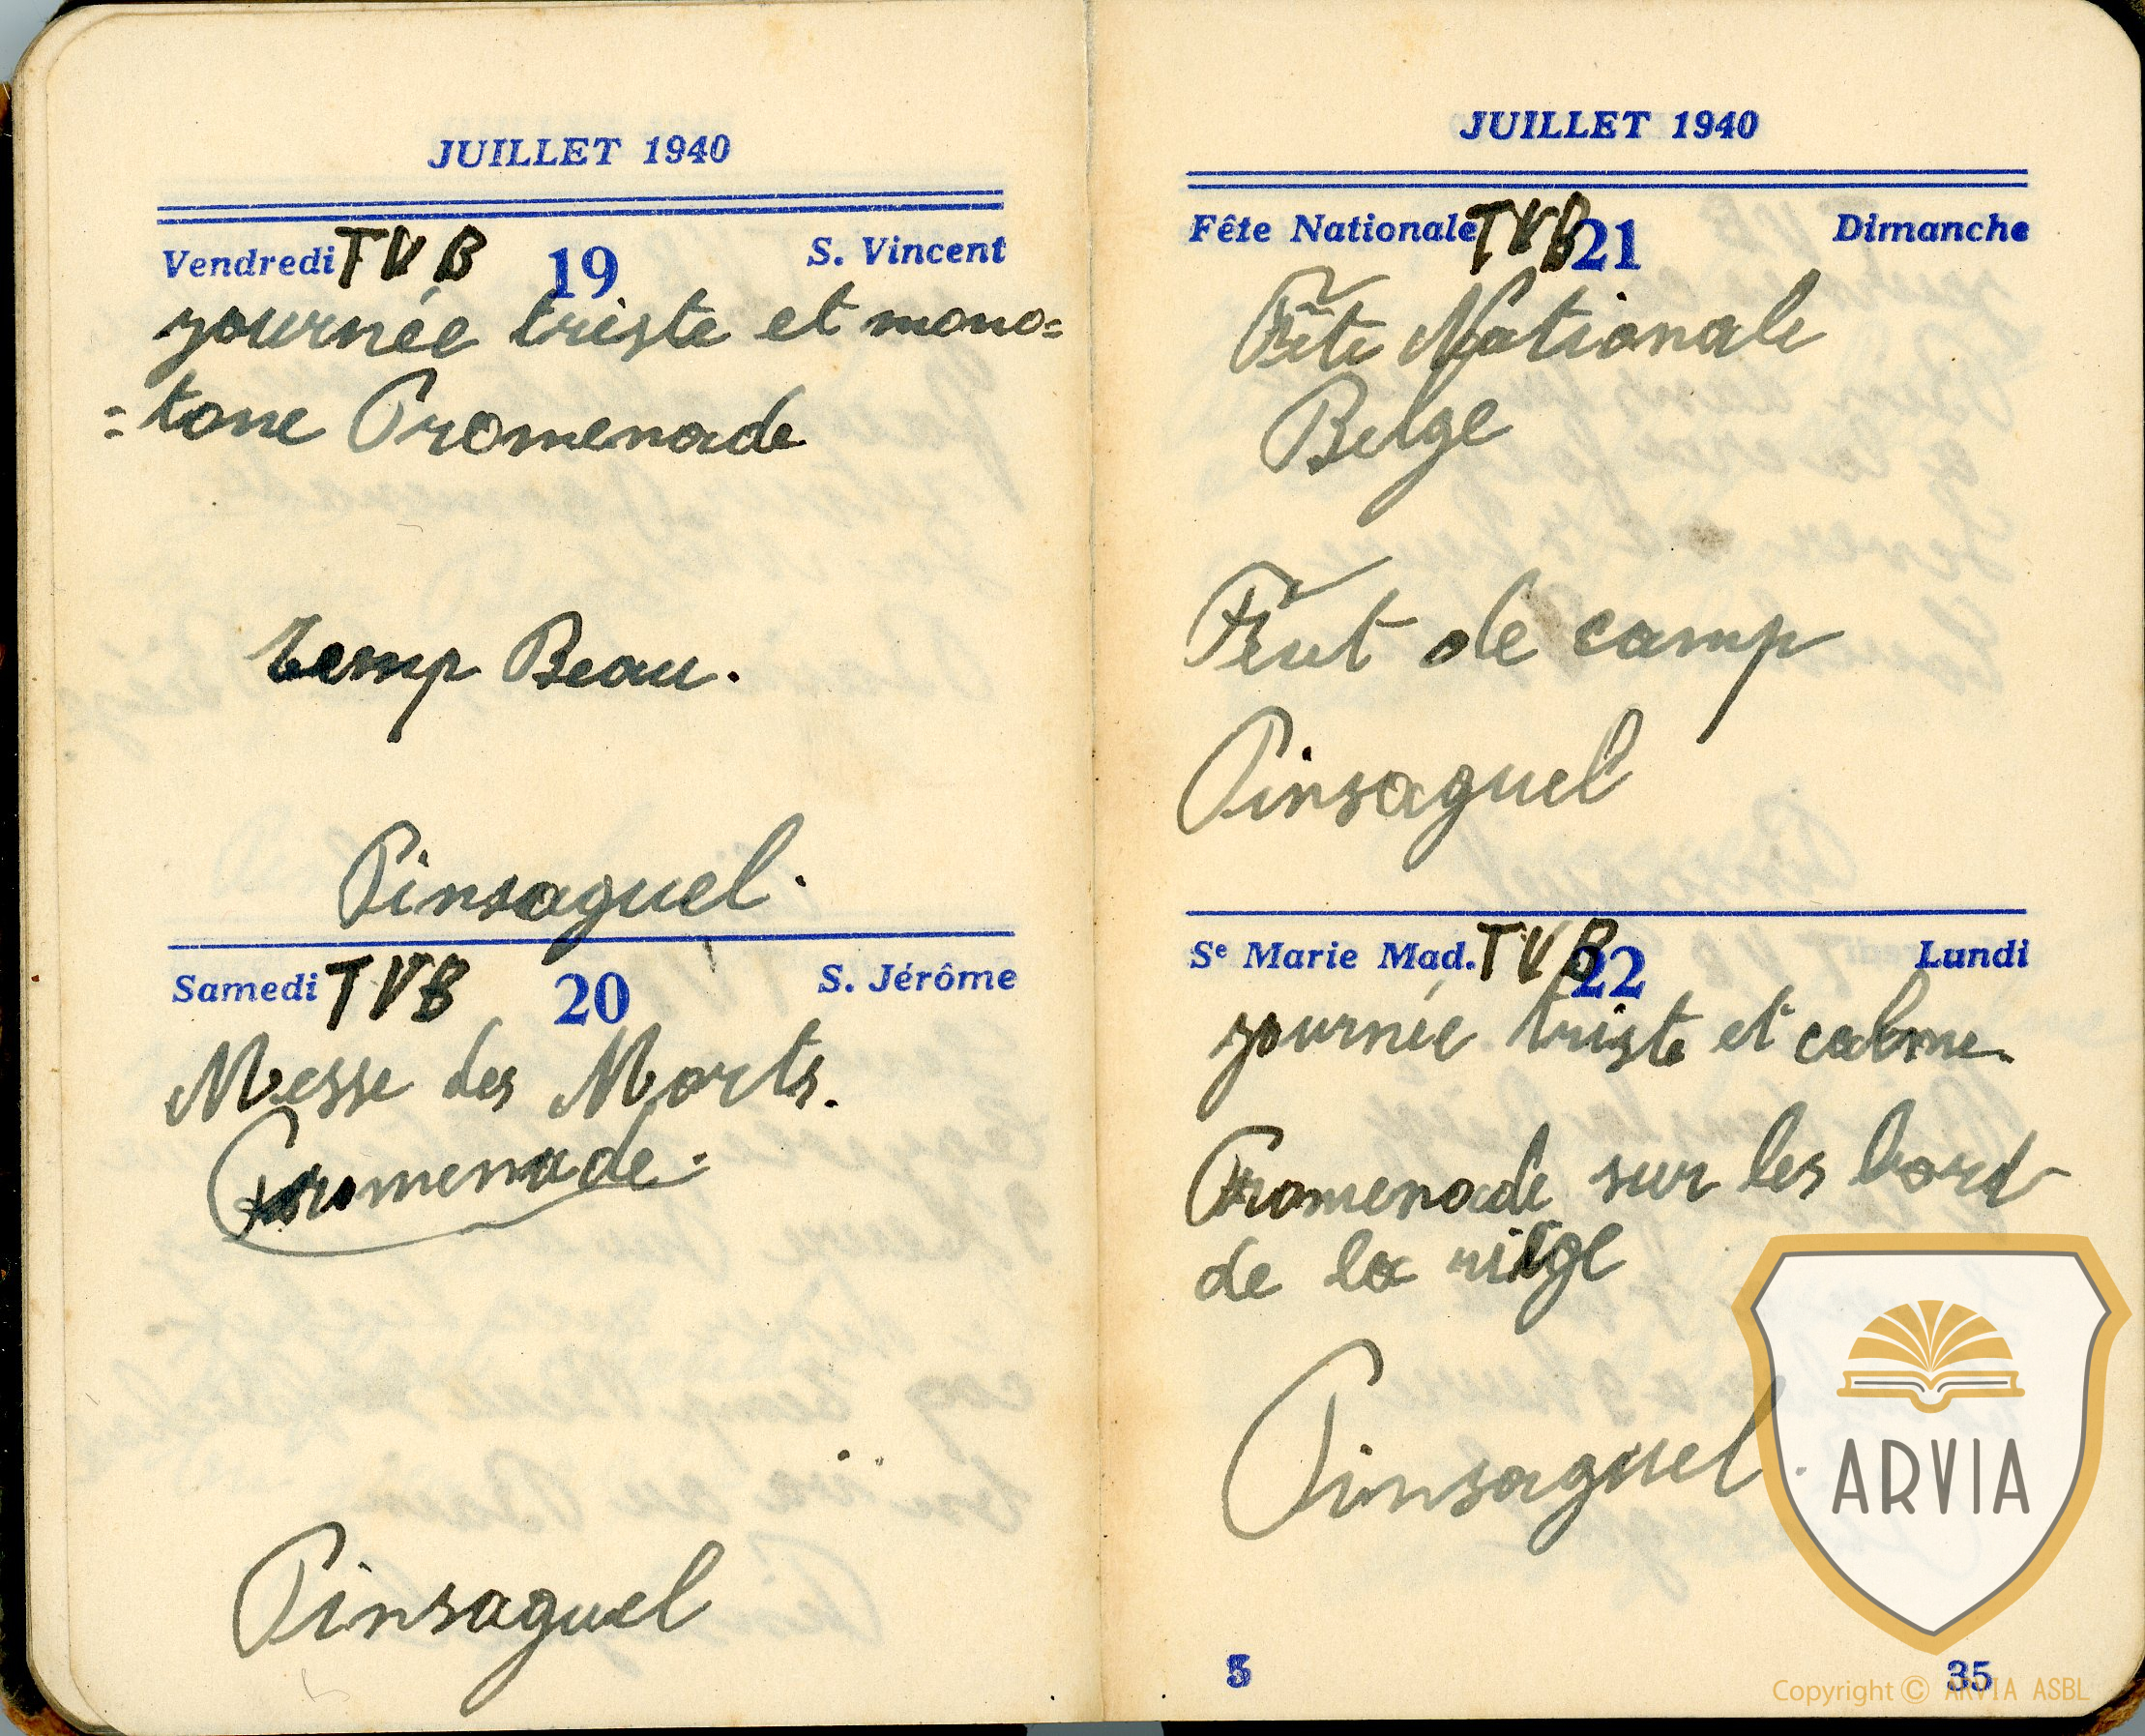 JUILLET 1940
Vendredi TVB 19 S. Vincent
journée triste et mono=
=tone Promenade
Temp Beau.
Pinsaguel.
Samedi TVB 20 S. Jérôme
Messe des Morts.
Promenade.
Pinsaguel
JUILLET 1940
Fête Nationale TVB 21 Dimanche
Fête Nationale
Belge
Feut de camp
Pinsaguel
Se Marie Mad. TVB 22 Lundi
journée triste et calme.
Promenade sur les bord
de la riège
Pinsaguel.
5 35
ARVIA
Copyright © ARVIA ASBL